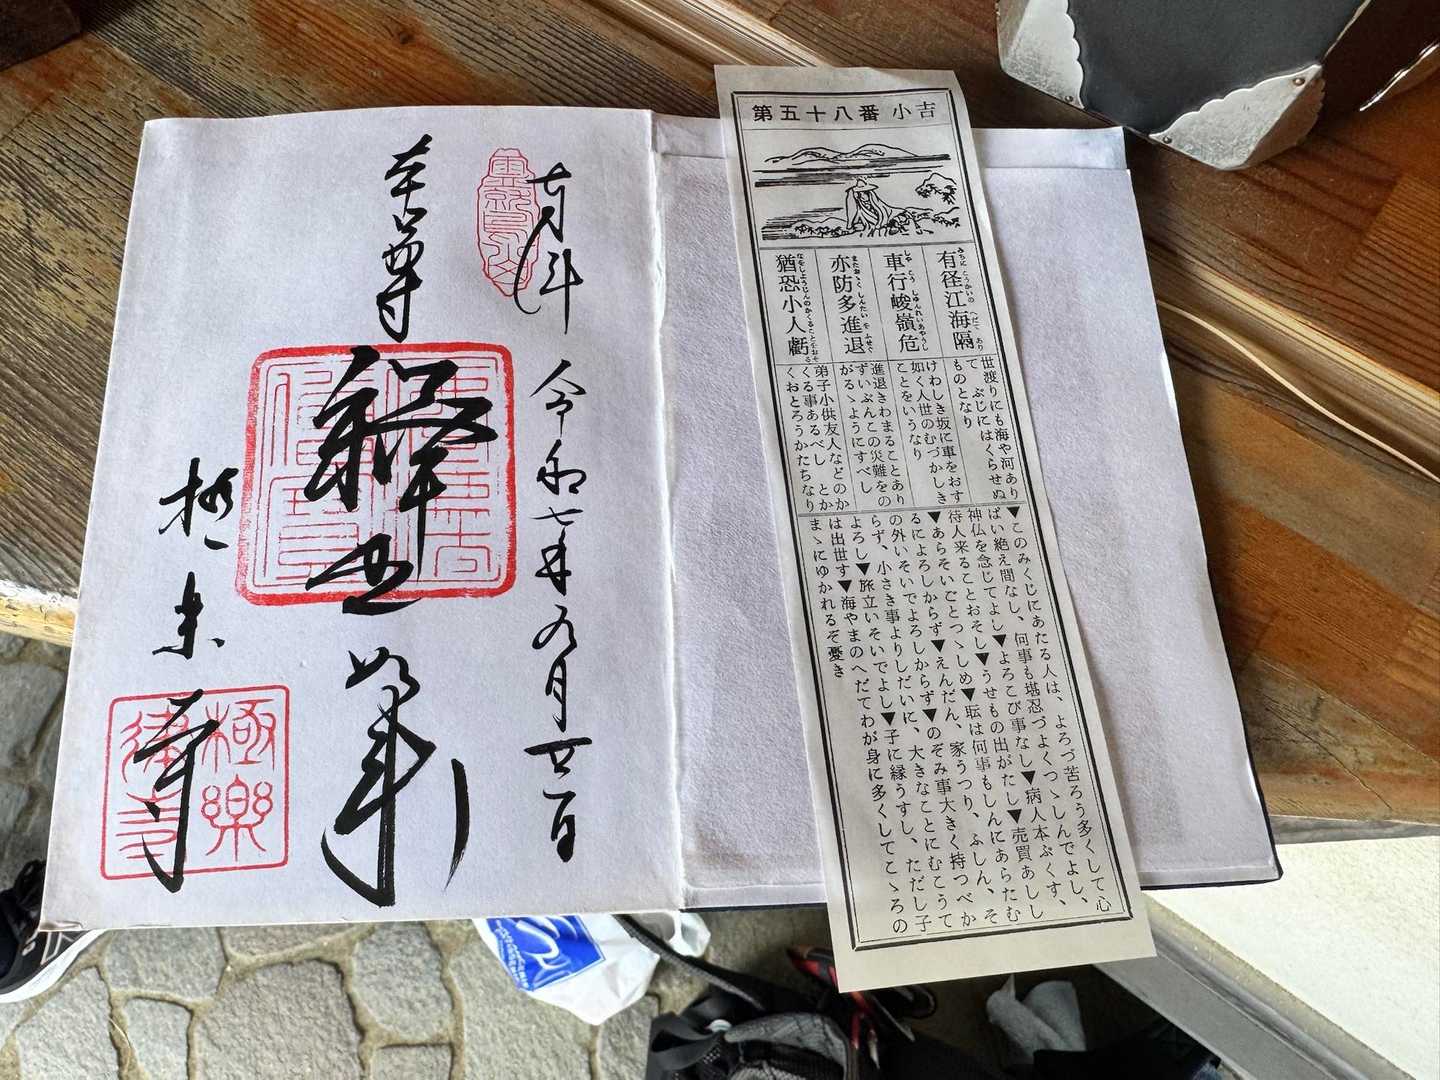 奉拝
令和七年九月廿一日
本尊
釋迦如来
極楽寺
極樂律寺
第五十八番 小吉
有径江海隔
みちに こうかいの へだて あり
車行峻嶺危
しゃ こう しゅんれいあやうし
亦防多進退
またおゝく しんたい を ふせぐ
猶恐小人虧
なをしようじんのかくることをおそる
世渡りにも海や河あり
て ぶじにはくらせぬ
ものとなり
けわしき坂に車をおす
如く人世のむづかしき
ことをいうなり
進退きわまることあり
ずいぶんこの災難をの
がるゝようにすべし
弟子小供友人などのか
くる事あるべし とか
くおとろうかたちなり
▼このみくじにあたる人は、よろづ苦ろう多くして心
ぱい絶え間なし、何事も堪忍づよくつゝしんでよし、
神仏を念じてよし▼よろこび事なし▼病人本ぷくす、
待人来ることおそし▼うせもの出がたし▼売買あしし
▼あらそいごとつゝしめ▼転は何事もしんにあらたむ
るによろしからず▼えんだん、家うつり、ふしん、そ
の外いそいでよろしからず▼のぞみ事大きく持つべか
らず、小さき事よりしだいに、大きなことにむこうて
よろし▼旅立いそいでよし▼子に縁うすし、ただし子
は出世す▼海やまのへだてわが身に多くしてこゝろの
まゝにゆかれるぞ憂き